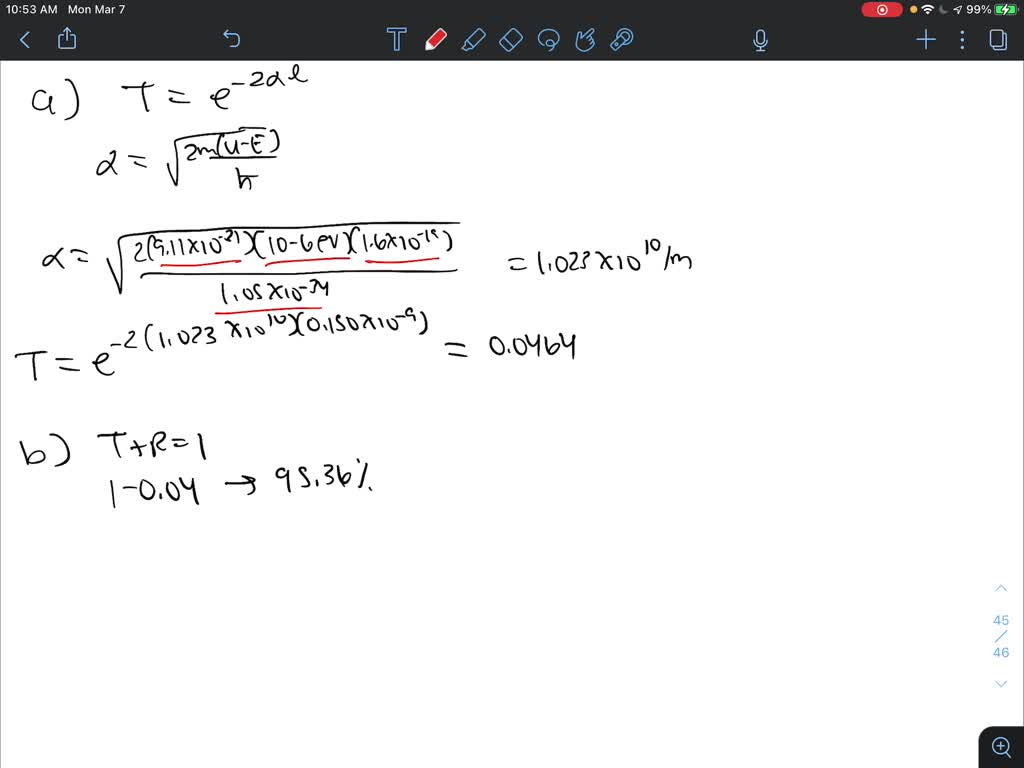 10:53 AM Mon Mar 7
99%
a) T = e^{-2αl}
α = √(2m(U-E)/ħ)
α = √(2(9.11x10^{-31})(10-6eV)(1.6x10^{-19})/1.05x10^{-34}) = 1.023x10^{10}/m
T = e^{-2(1.023x10^{10})(0.150x10^{-9})} = 0.0464
b) T+R=1
1-0.04 → 95.36%
45
/
46